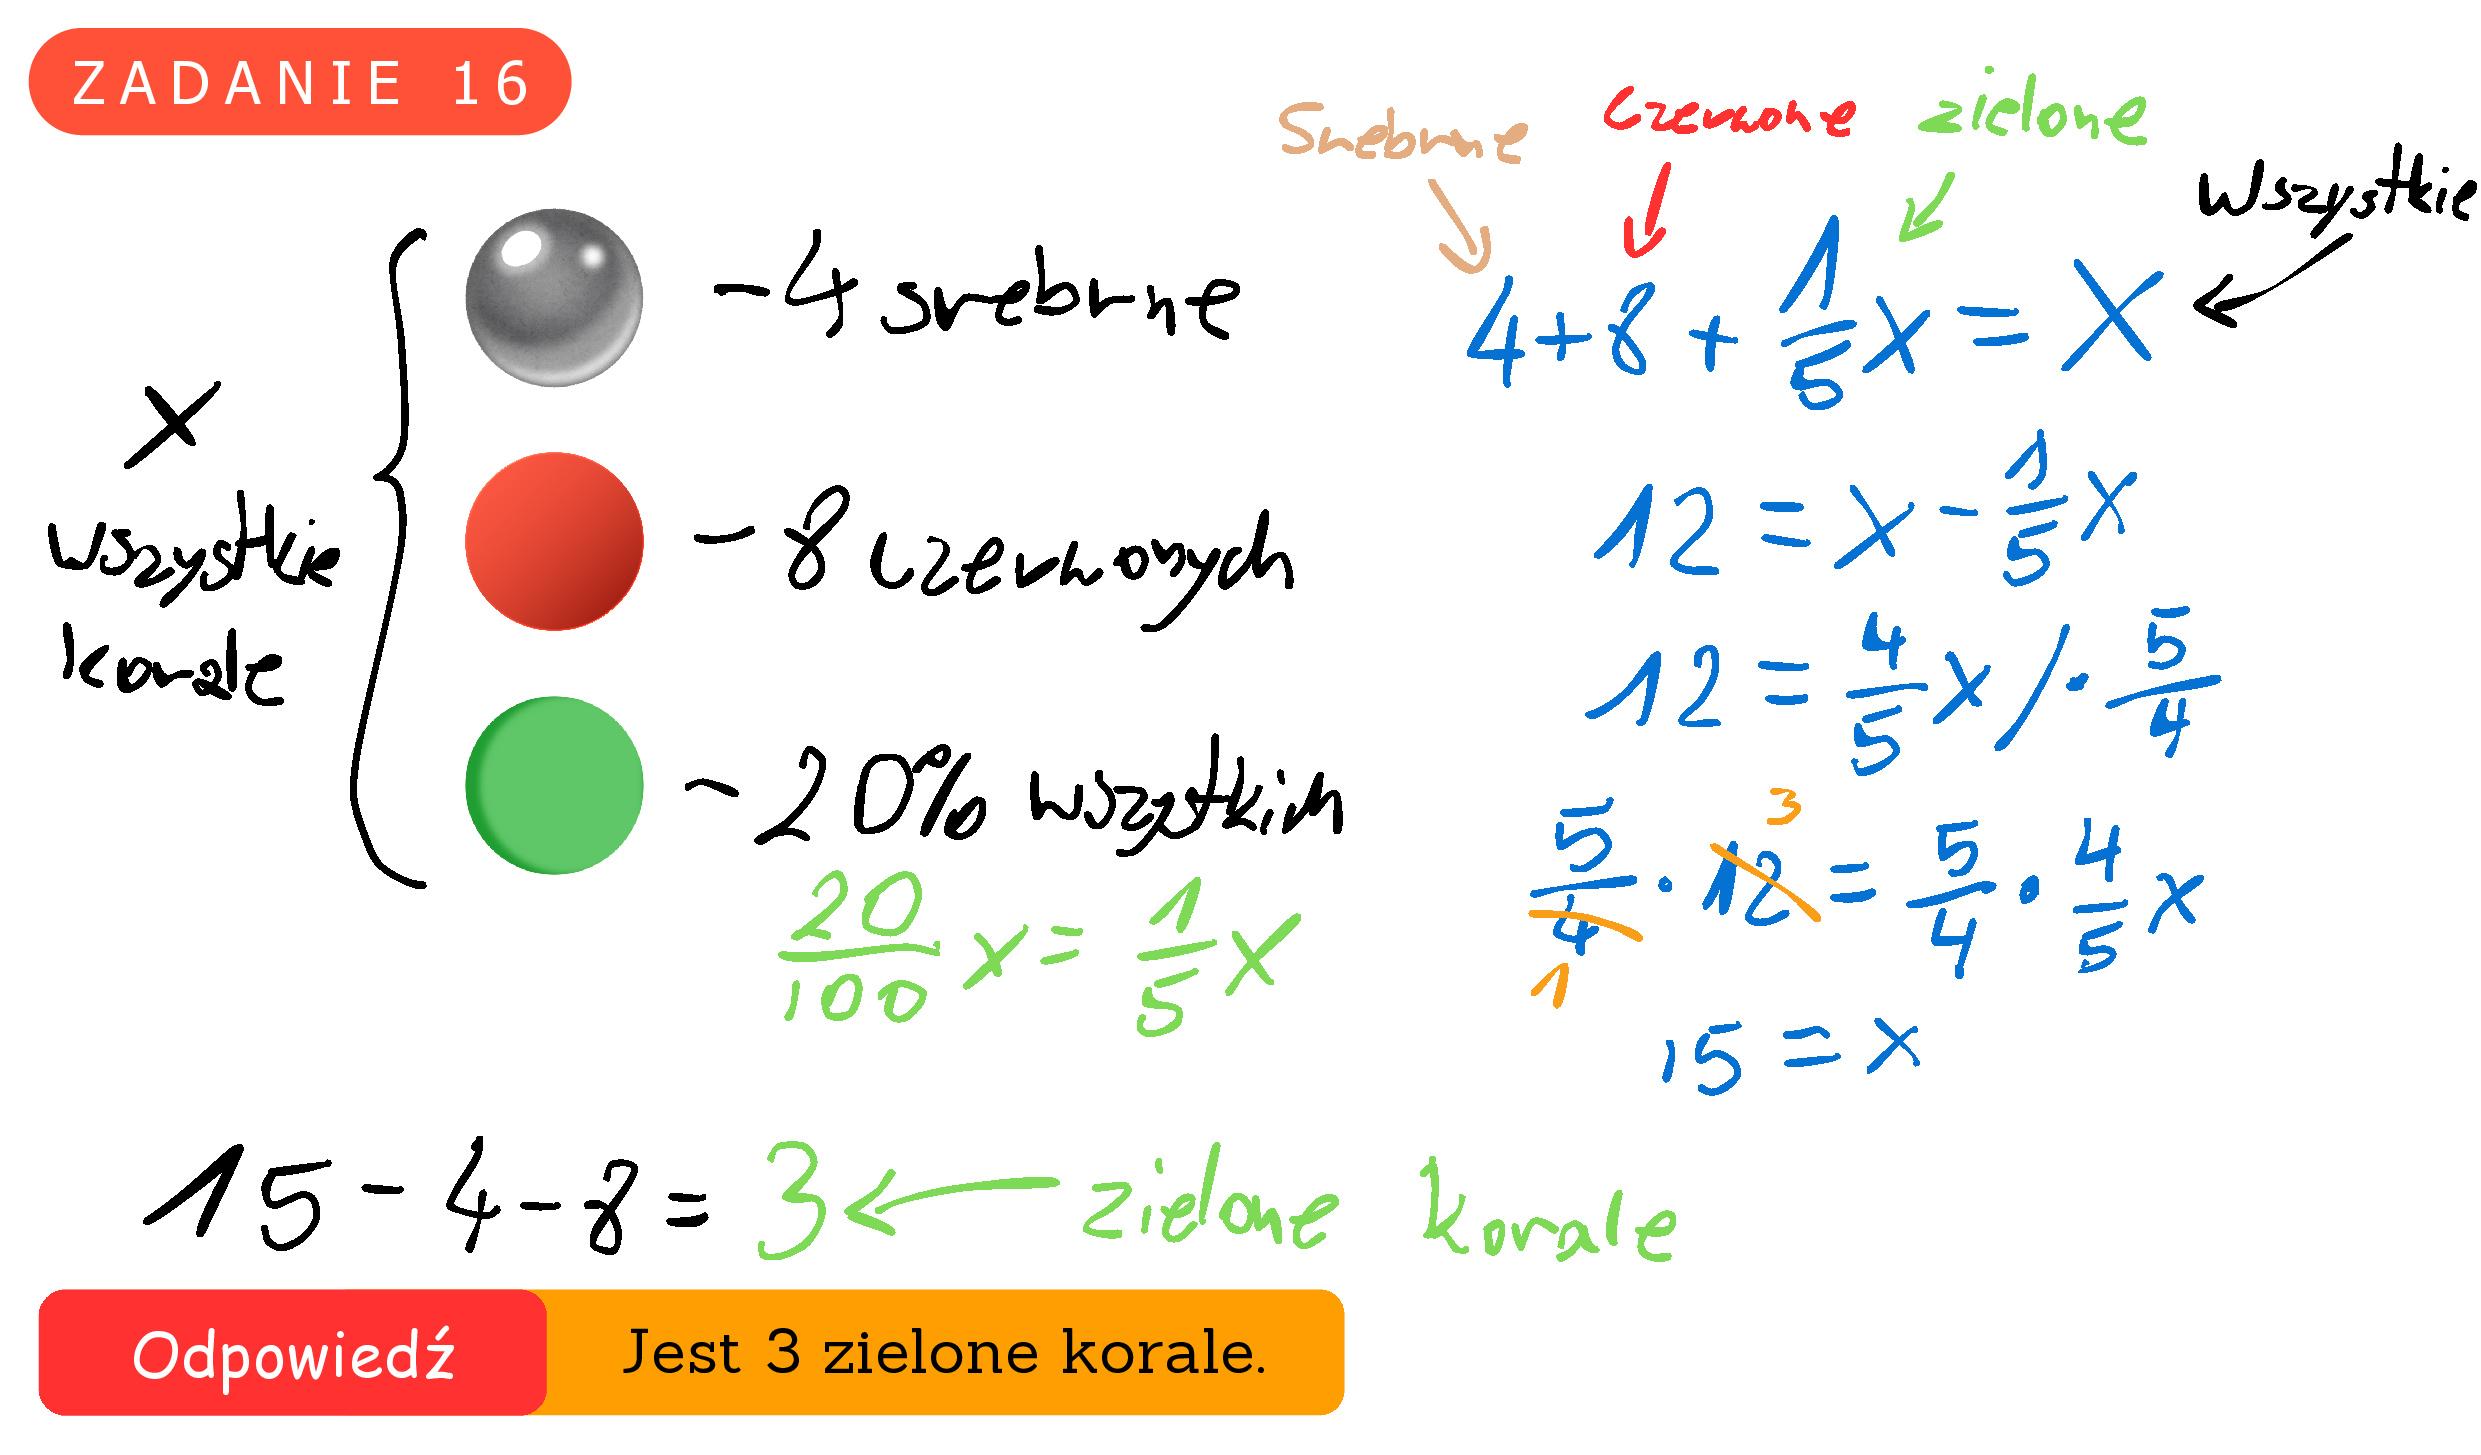 ZADANIE 16
Srebrne czerwone zielone
wszystkie
- 4 srebrne
4 + 8 + 1/5 x = x
x
wszystkie
korale
- 8 czerwonych
12 = x - 1/5 x
12 = 4/5 x / · 5/4
- 20% wszystkich
20/100 x = 1/5 x
3
5/4 · 12 = 5/4 · 4/5 x
1
15 = x
15 - 4 - 8 = 3 ← zielone korale
Odpowiedź
Jest 3 zielone korale.